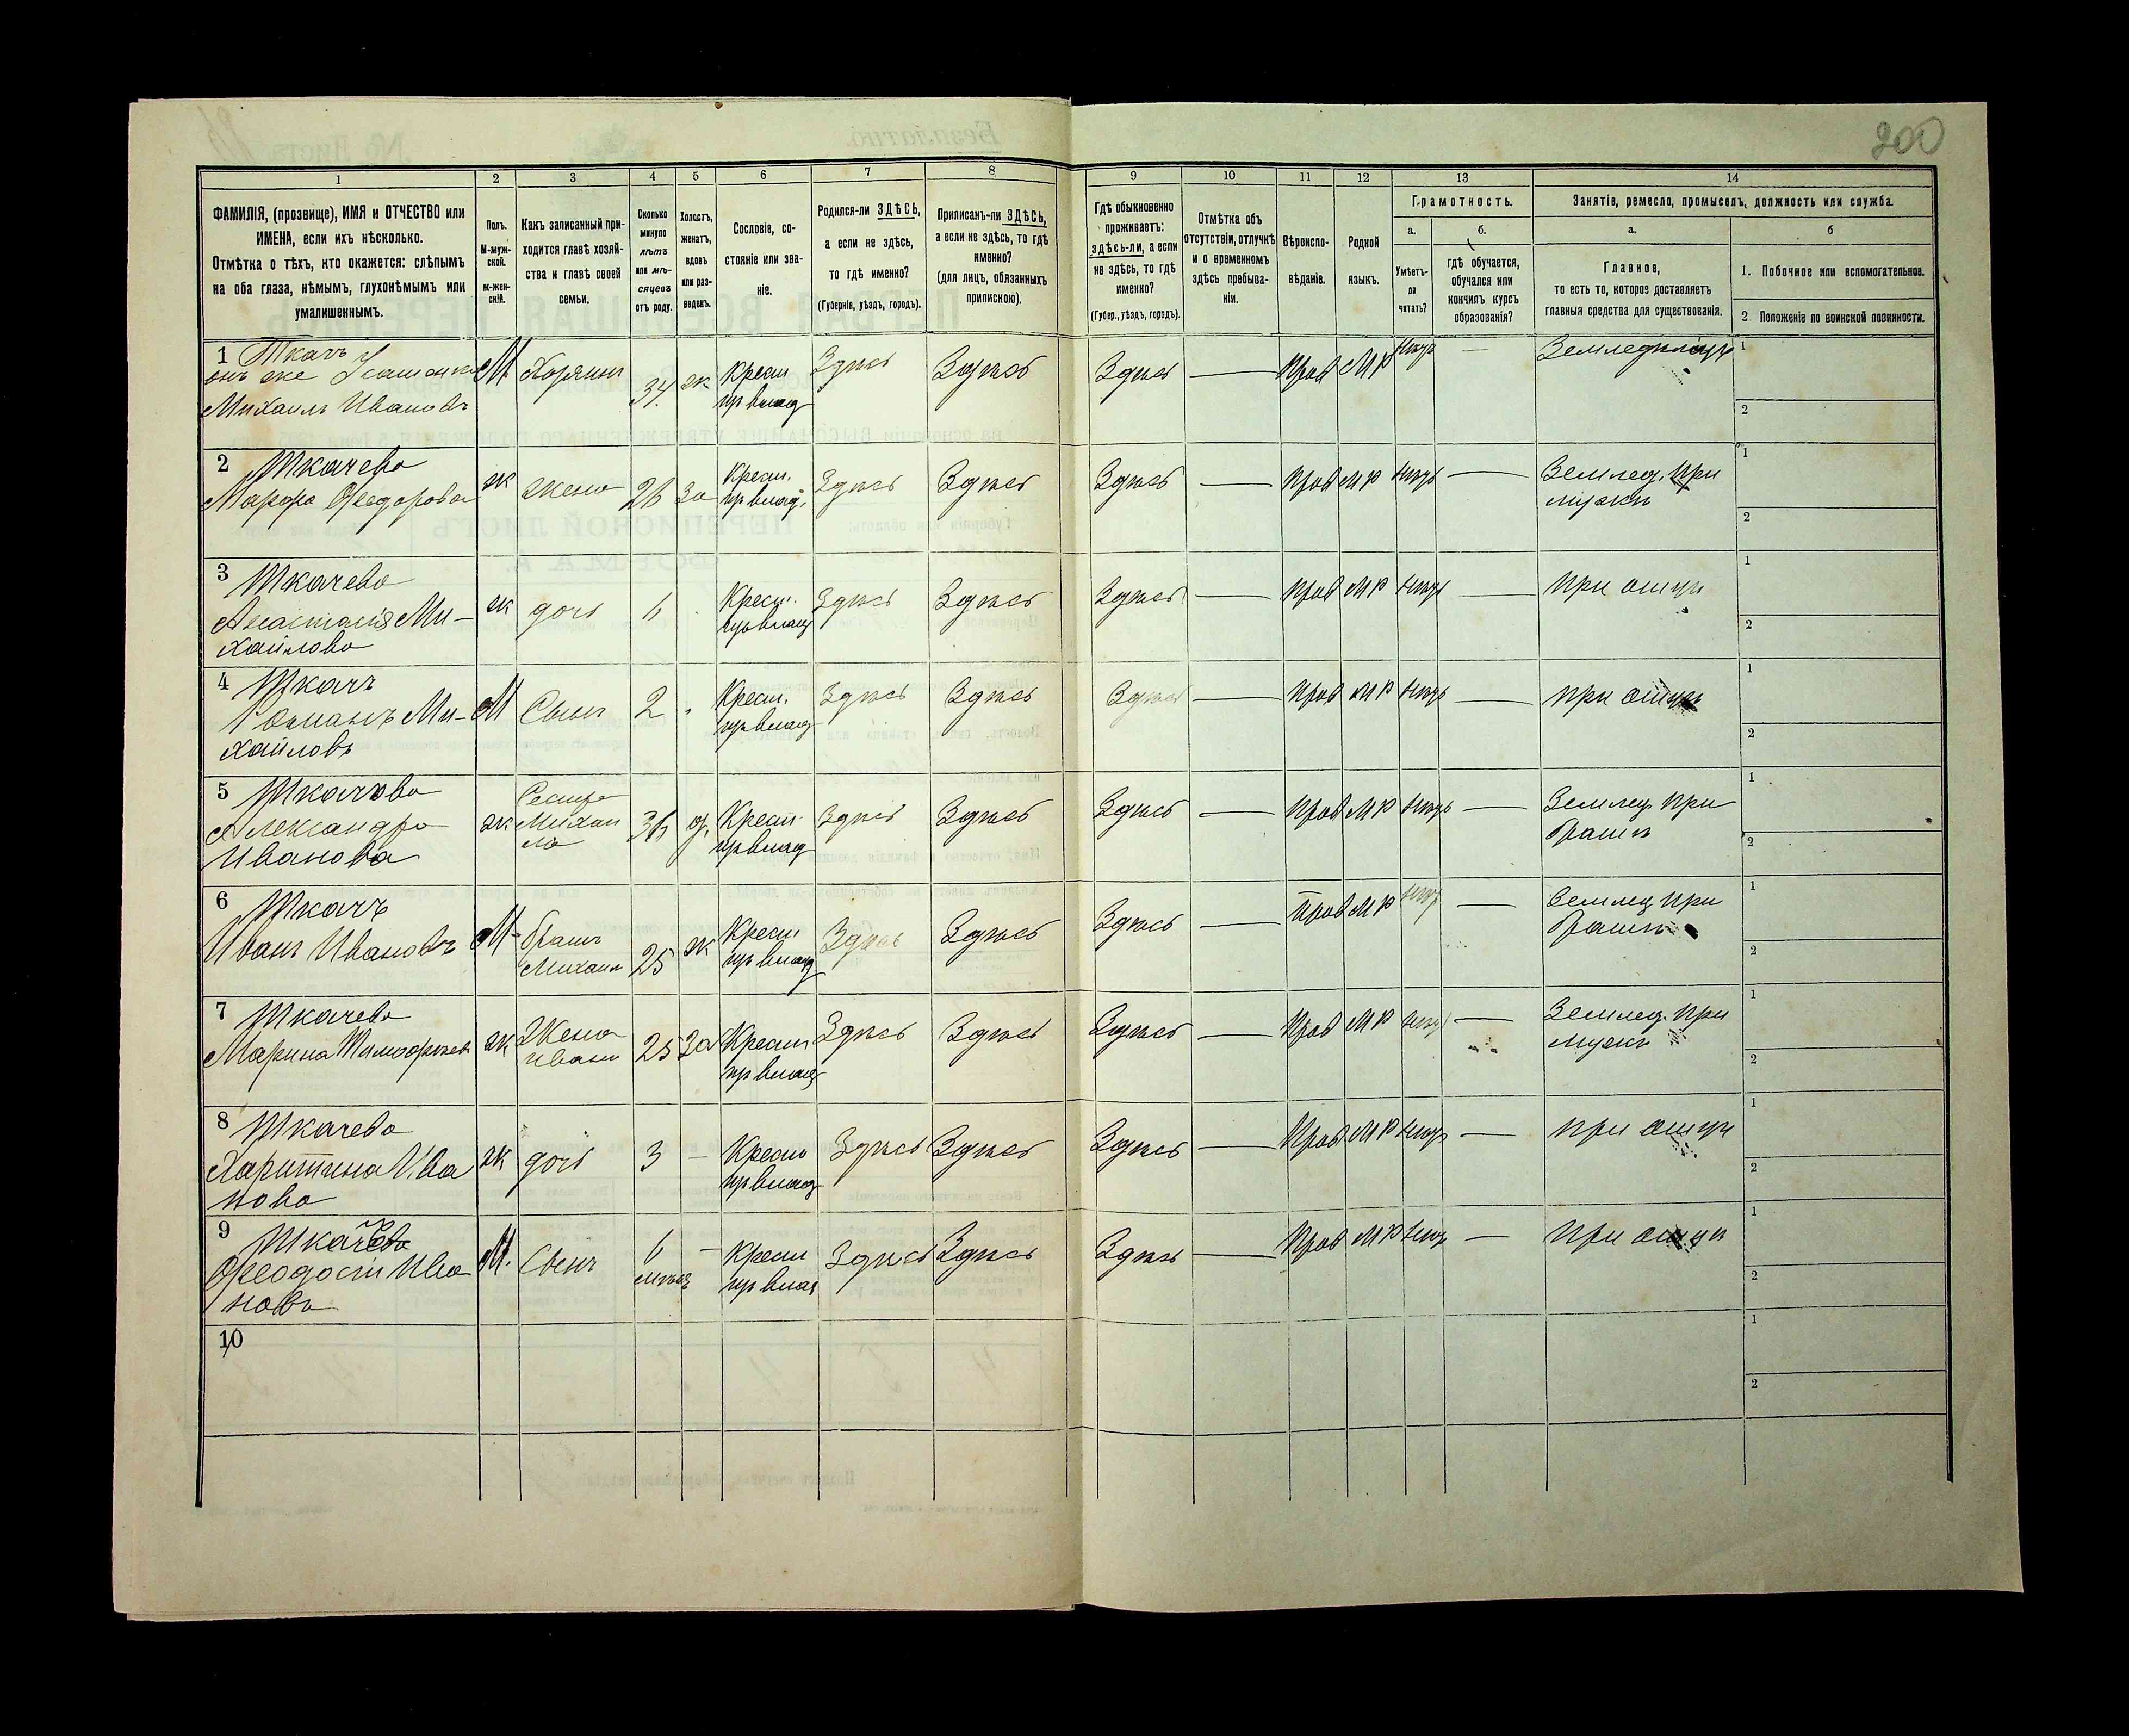 200
1 2 3 4 5 6 7 8 9 10 11 12 13 14
ФАМИЛІЯ, (прозвище), ИМЯ и ОТЧЕСТВО или
ИМЕНА, если ихъ нѣсколько.
Отмѣтка о тѣхъ, кто окажется: слѣпымъ
на оба глаза, нѣмымъ, глухонѣмымъ или
умалишеннымъ.
Полъ.
М-муж-
ской.
ж-жен-
скій.
Какъ записанный при-
ходится главѣ хозяй-
ства и главѣ своей
семьи.
Сколько
минуло
лѣтъ
или мѣ-
сяцевъ
отъ роду.
Холостъ,
женатъ,
вдовъ
или раз-
веденъ.
Сословіе, со-
стояніе или зва-
ніе.
Родился-ли ЗДѢСЬ,
а если не здѣсь,
то гдѣ именно?
(Губернія, уѣздъ, городъ).
Приписанъ-ли ЗДѢСЬ,
а если не здѣсь, то гдѣ
именно?
(для лицъ, обязанныхъ
припискою).
Гдѣ обыкновенно
проживаетъ:
здѣсь-ли, а если
не здѣсь, то гдѣ
именно?
(Губер., уѣздъ, городъ).
Отмѣтка объ
отсутствіи, отлучкѣ
и о временномъ
здѣсь пребыва-
ніи.
Вѣроиспо-
вѣданіе.
Родной
языкъ.
Грамотность.
а.
Умѣетъ-
ли
читать?
б.
гдѣ обучается,
обучался или
кончилъ курсъ
образованія?
Занятіе, ремесло, промыселъ, должность или служба.
а.
Главное,
то есть то, которое доставляетъ
главныя средства для существованія.
б
1. Побочное или вспомогательное.
2. Положеніе по воинской повинности.
1 Ткачъ
онъ же
Михаилъ Ивановъ
М Хозяинъ 34 ж Крест Здѣсь Здѣсь Здѣсь — Прав М Р — 1
2
2 Ткачева
Марфа Феодорова
ж жена 26 за Крест. Здѣсь Здѣсь Здѣсь — прав М Р — Землед. при
мужи
1
2
3 Ткачева
Анастасія Ми-
хайлова
ж дочь 6 Крест. Здѣсь Здѣсь Здѣсь — прав М Р — при отци
1
2
4 Ткачъ
Романъ Ми-
хайловъ
М Сынъ 2 Крест. Здѣсь Здѣсь Здѣсь — прав М Р — при отци
1
2
5 Ткачова
Александра
Иванова
ж Сестра
Михаи
ла
36 Крест Здѣсь Здѣсь Здѣсь — прав М Р — Землед. при
Брати
1
2
6 Ткачъ
Иванъ Ивановъ
М братъ
Михаил
25 ж Крест Здѣсь Здѣсь Здѣсь — прав М Р — Землед при
Брати
1
2
7 Ткачева
Марина Тимофеев
ж Жена
Ивана
25 за Крест Здѣсь Здѣсь Здѣсь — Прав М Р — Землед. при
мужи
1
2
8 Ткачева
Харитина Ива
нова
ж дочь 3 — Крест Здѣсь Здѣсь Здѣсь — Прав М Р — при отци
1
2
9 Ткачъ
Феодосій Ива
новъ
М. Сынъ 6 — Крест Здѣсь Здѣсь Здѣсь — Прав М Р — при отци
1
2
10
1
2